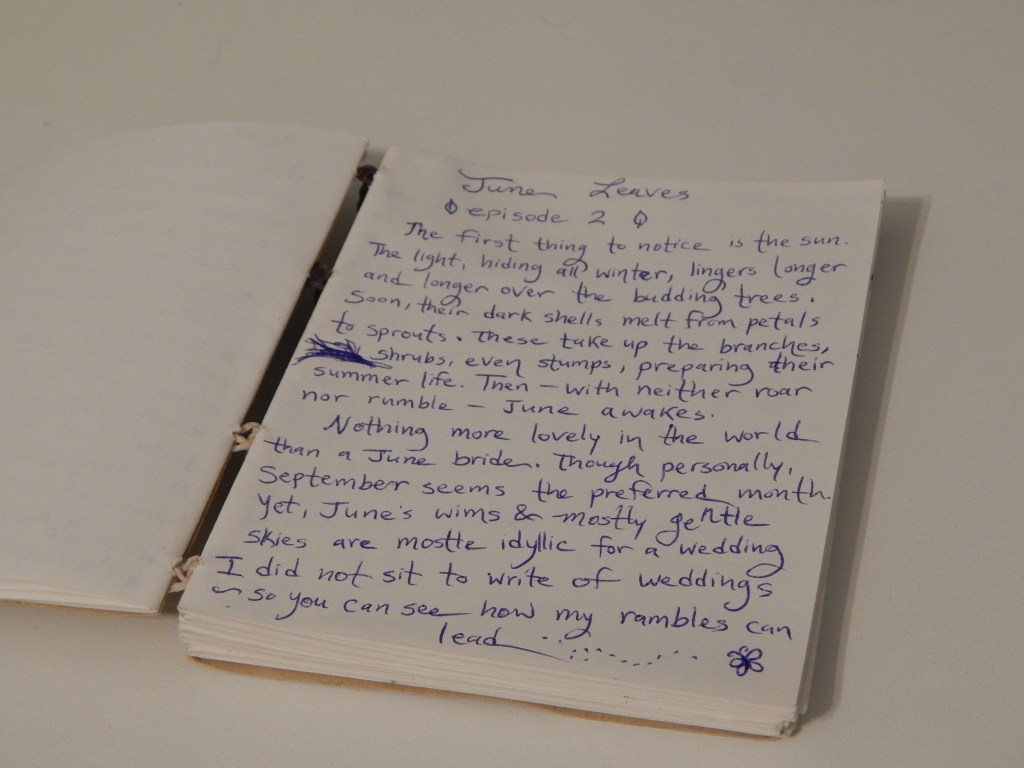 June Leaves
episode 2
The first thing to notice is the sun.
The light, hiding all winter, lingers longer
and longer over the budding trees.
Soon, their dark shells melt from petals
to sprouts. These take up the branches,
shrubs, even stumps, preparing their
summer life. Then – with neither roar
nor rumble – June awakes.
Nothing more lovely in the world
than a June bride. Though personally,
September seems the preferred month.
Yet, June's wims & mostly gentle
skies are mostte idyllic for a wedding
I did not sit to write of weddings
~ so you can see how my rambles can
lead